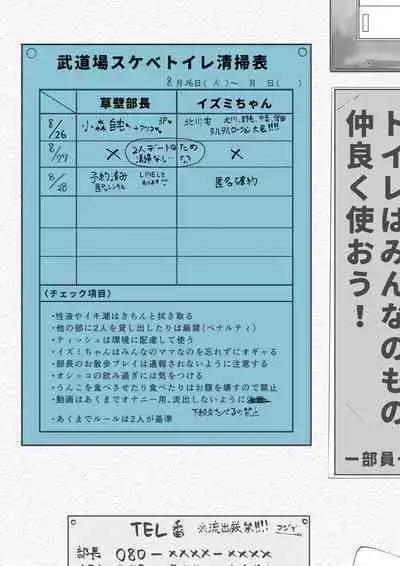 武道場スケベトイレ清掃表
8月26日(人)〜 月 日( )
草壁部長 イズミちゃん
8/26
8/27 × 2人デートなため 清掃なし… ×
8/28 予約済み LINEして 匿名確約
〈チェック項目〉
・性液やイキ潮はきちんと拭き取る
・他の部に2人を貸し出したりは厳禁(ペナルティ)
・ティッシュは環境に配慮して使う
・イズミちゃんはみんなのママなのを忘れずにオギャる
・部長のお散歩プレイは通報されないように注意する
・オシッコの飲み過ぎには気をつける
・うんこを食べさせたり食べたりはお腹を壊すので禁止
・動画はあくまでオナニー用、流出しないように
・あくまでルールは2人が基準
トイレはみんなのもの
仲良く使おう!
ー部員一
TEL番 ※流出厳禁!!!! マジで
部長 080-××××-××××